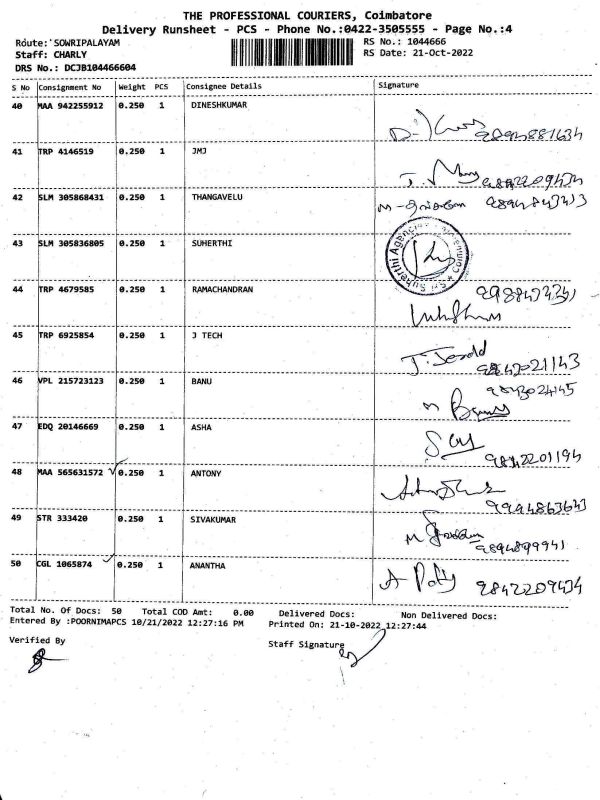 THE PROFESSIONAL COURIERS, Coimbatore
Delivery Runsheet - PCS - Phone No.:0422-3505555 - Page No.:4
Route: SOWRIPALAYAM RS No.: 1044666
Staff: CHARLY RS Date: 21-Oct-2022
DRS No.: DCJB104466604
S No Consignment No Weight PCS Consignee Details Signature
40 MAA 942255912 0.250 1 DINESHKUMAR
41 TRP 4146519 0.250 1 JMJ
42 SLM 305868431 0.250 1 THANGAVELU
43 SLM 305836805 0.250 1 SUHERTHI
Suherthi Agencies
44 TRP 4679585 0.250 1 RAMACHANDRAN
45 TRP 6925854 0.250 1 J TECH
J. Jesold 9842021143
46 VPL 215723123 0.250 1 BANU
9843024145
47 EDQ 20146669 0.250 1 ASHA
9842201194
48 MAA 565631572 0.250 1 ANTONY
9994863643
49 STR 333420 0.250 1 SIVAKUMAR
9894899941
50 CGL 1065874 0.250 1 ANANTHA
9842209434
Total No. Of Docs: 50 Total COD Amt: 0.00 Delivered Docs: Non Delivered Docs:
Entered By :POORNIMAPCS 10/21/2022 12:27:16 PM Printed On: 21-10-2022 12:27:44
Verified By Staff Signature